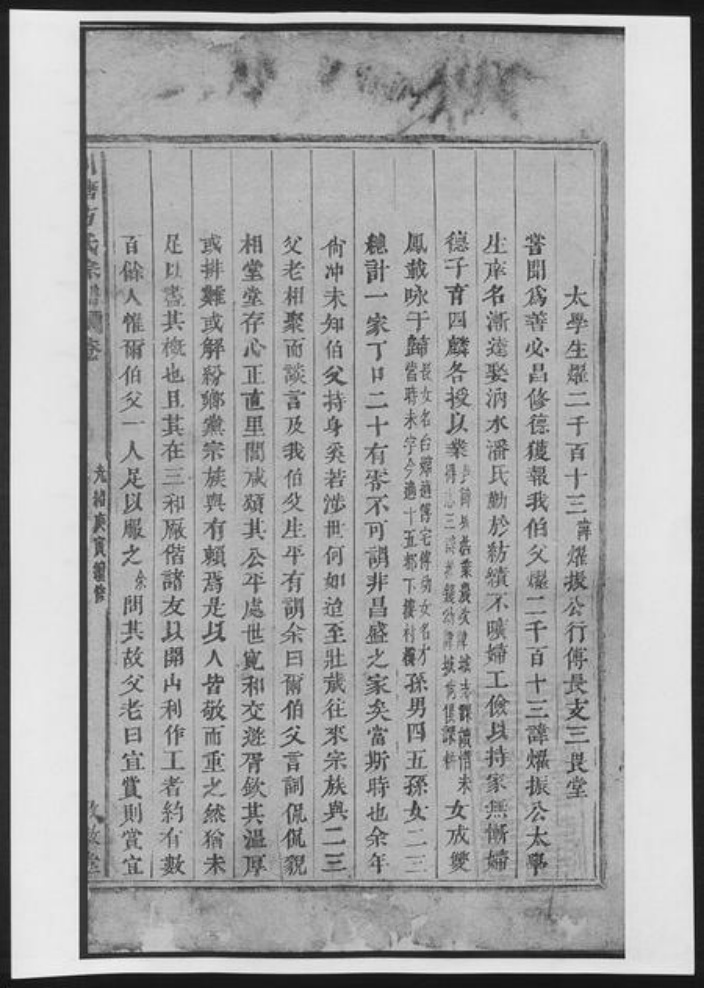 太學生燿二千百十三諱燿振公行傳長支三畏堂
嘗聞爲善必昌修德獲報我伯父燿二千百十三諱燿振公太學
生庠名漸逵娶汭水潘氏勤於紡績不曠婦工儉以持家無慚婦
德子育四麟各授以業女成雙
鳳載咏于歸長女名台嬌適傅宅傳幼女名才
當時未字今適十五都下樓村樓孫男四五孫女二三
總計一家丁口二十有零不可謂非昌盛之家矣當斯時也余年
尙冲未知伯父持身奚若涉世何如迨至壯歲往來宗族與二三
父老相聚而談言及我伯父生平有謂余曰爾伯父言詞侃侃貌
相堂堂存心正直里閭咸頌其公平處世寬和交遊胥欽其溫厚
或排難或解紛鄉黨宗族與有賴焉是以人皆敬而重之然猶未
足以盡其槪也且其在三和厰偕諸友以開山利作工者約有數
百餘人惟爾伯父一人足以服之余問其故父老曰宜賞則賞宜
塘方氏宗譜 卷
光緒庚寅續修
敦敘堂